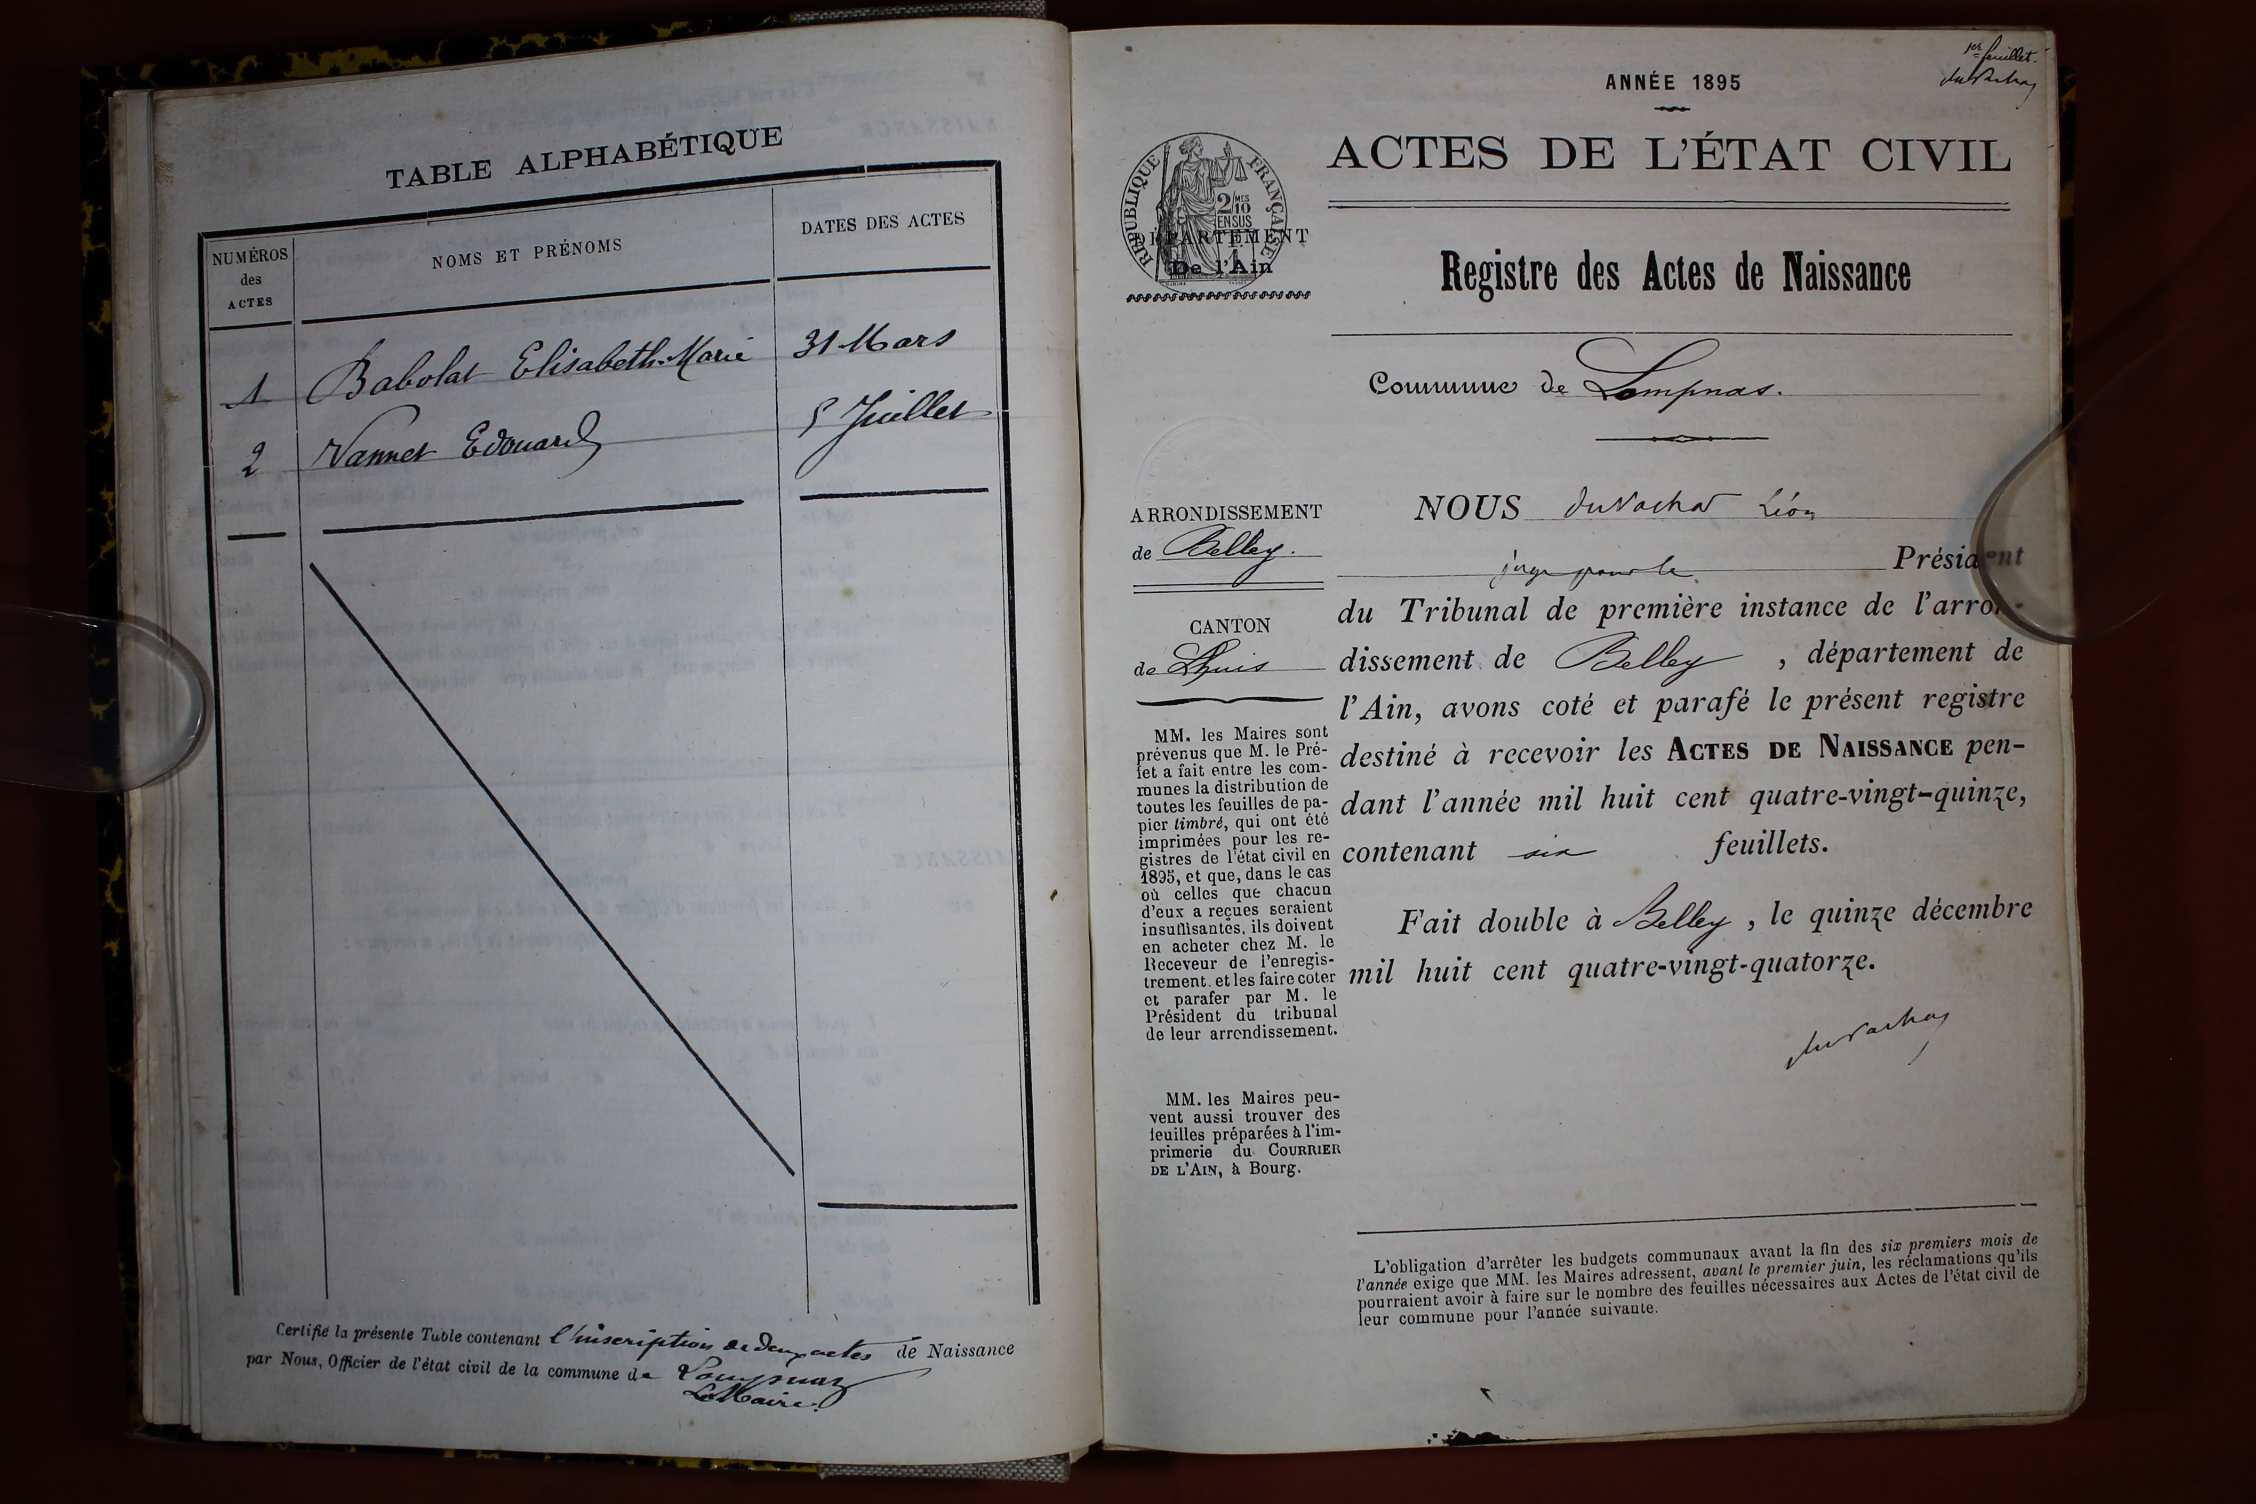 TABLE ALPHABÉTIQUE
NUMÉROS
des
ACTES
NOMS ET PRÉNOMS
DATES DES ACTES
1 Babolat Elisabeth-Marie 31 Mars
2 Vannet Edouard 5 Juillet
Certifié la présente Table contenant l'inscription de deux actes de Naissance
par Nous, Officier de l'état civil de la commune de Lompnaz
Le Maire.
1er feuillet.
ANNÉE 1895
ACTES DE L'ÉTAT CIVIL
RÉPUBLIQUE FRANÇAISE
2/10 MES
EN SUS
DÉPARTEMENT
De l'Ain
Registre des Actes de Naissance
Commune de Lompnas.
ARRONDISSEMENT
de Belley.
CANTON
de Lhuis
MM. les Maires sont
prévenus que M. le Pré-
fet a fait entre les com-
munes la distribution de
toutes les feuilles de pa-
pier timbré, qui ont été
imprimées pour les re-
gistres de l'état civil en
1895, et que, dans le cas
où celles que chacun
d'eux a reçues seraient
insuffisantes, ils doivent
en acheter chez M. le
Receveur de l'enregis-
trement. et les faire coter
et parafer par M. le
Président du tribunal
de leur arrondissement.
MM. les Maires peu-
vent aussi trouver des
feuilles préparées à l'im-
primerie du COURRIER
DE L'AIN, à Bourg.
NOUS duVachat Léon
juge pour le Président
du Tribunal de première instance de l'arron-
dissement de Belley , département de
l'Ain, avons coté et parafé le présent registre
destiné à recevoir les ACTES DE NAISSANCE pen-
dant l'année mil huit cent quatre-vingt-quinze,
contenant six feuillets.
Fait double à Belley , le quinze décembre
mil huit cent quatre-vingt-quatorze.
duVachat
L'obligation d'arrêter les budgets communaux avant la fin des six premiers mois de
l'année exige que MM. les Maires adressent, avant le premier juin, les réclamations qu'ils
pourraient avoir à faire sur le nombre des feuilles nécessaires aux Actes de l'état civil de
leur commune pour l'année suivante.